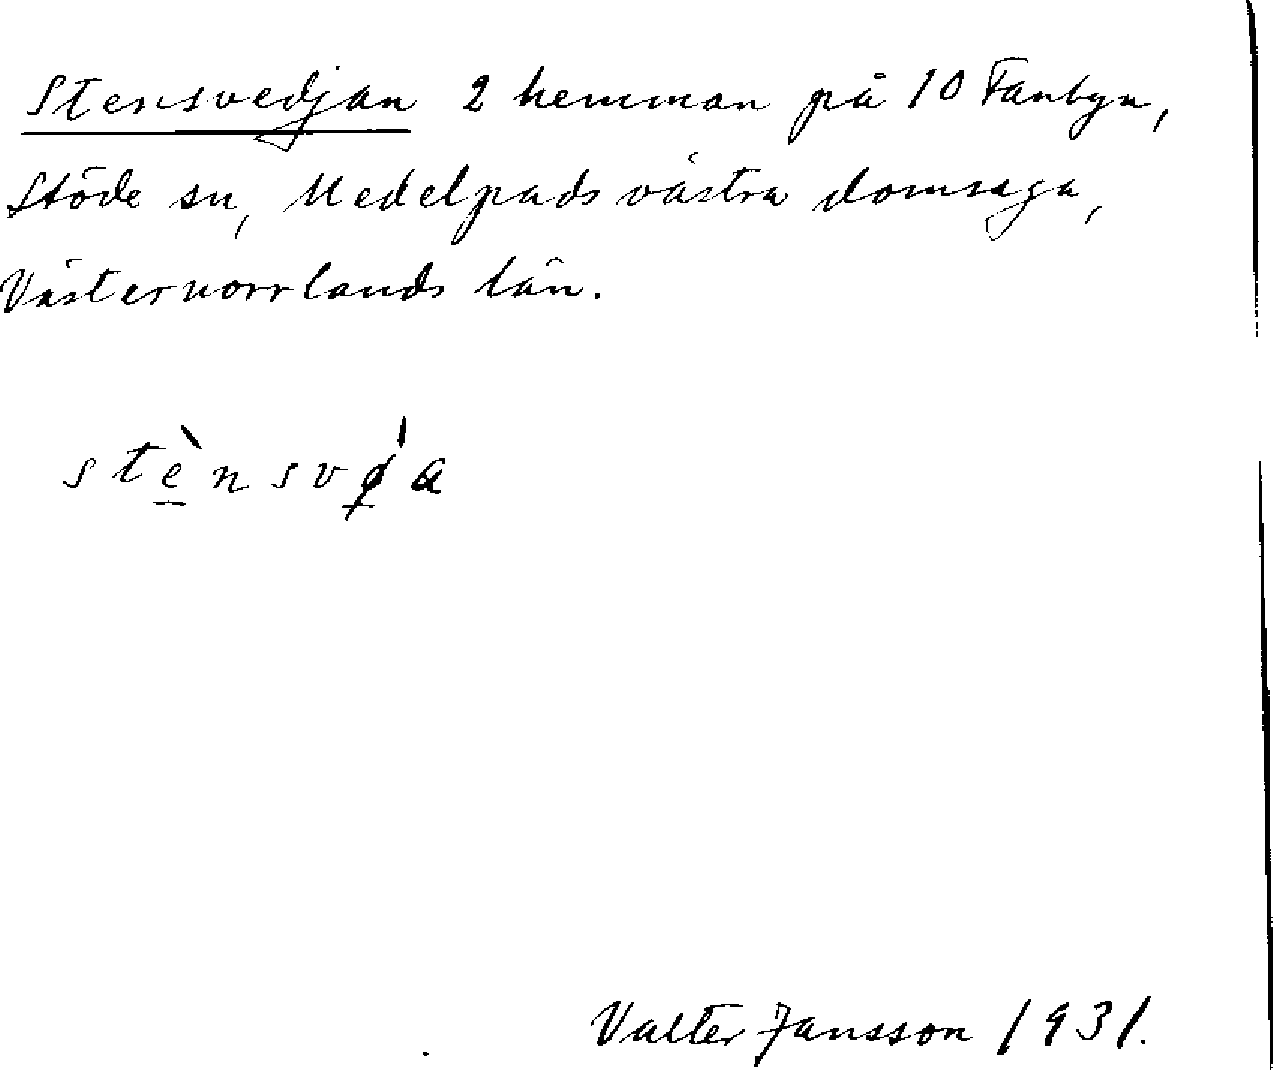 Stensvedjan 2 hemman på 10 Fanbyn,
Stöde sn, Medelpads västra domsaga,
Västernorrlands län.
Valter Jansson 1931.